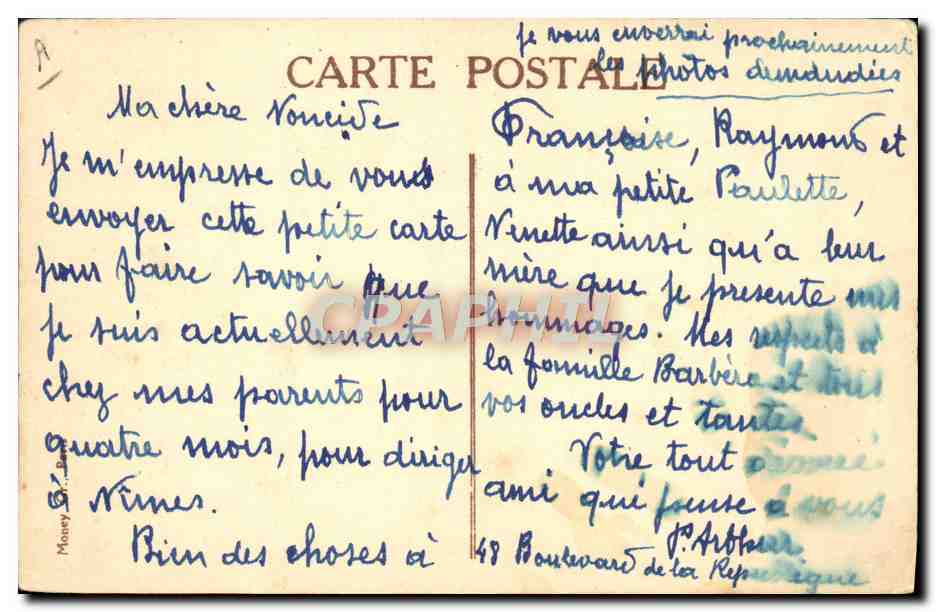 A
je vous enverrai prochainement
les photos demandées
CARTE POSTALE
Ma chère Noncide
Je m'empresse de vous
envoyer cette petite carte
pour faire savoir que
je suis actuellement
chez mes parents pour
quatre mois, pour diriger
à Nîmes.
Bien des choses à
Françoise, Raymond et
à ma petite Paulette,
Ninette ainsi qu'a leur
mère que je presente mes
hommages. Mes respects à
la famille Barbère et tous
vos oncles et tantes
Votre tout
ami qui pense à vous
P. Arthur
48 Boulevard de la République
CPAPHIL
Money